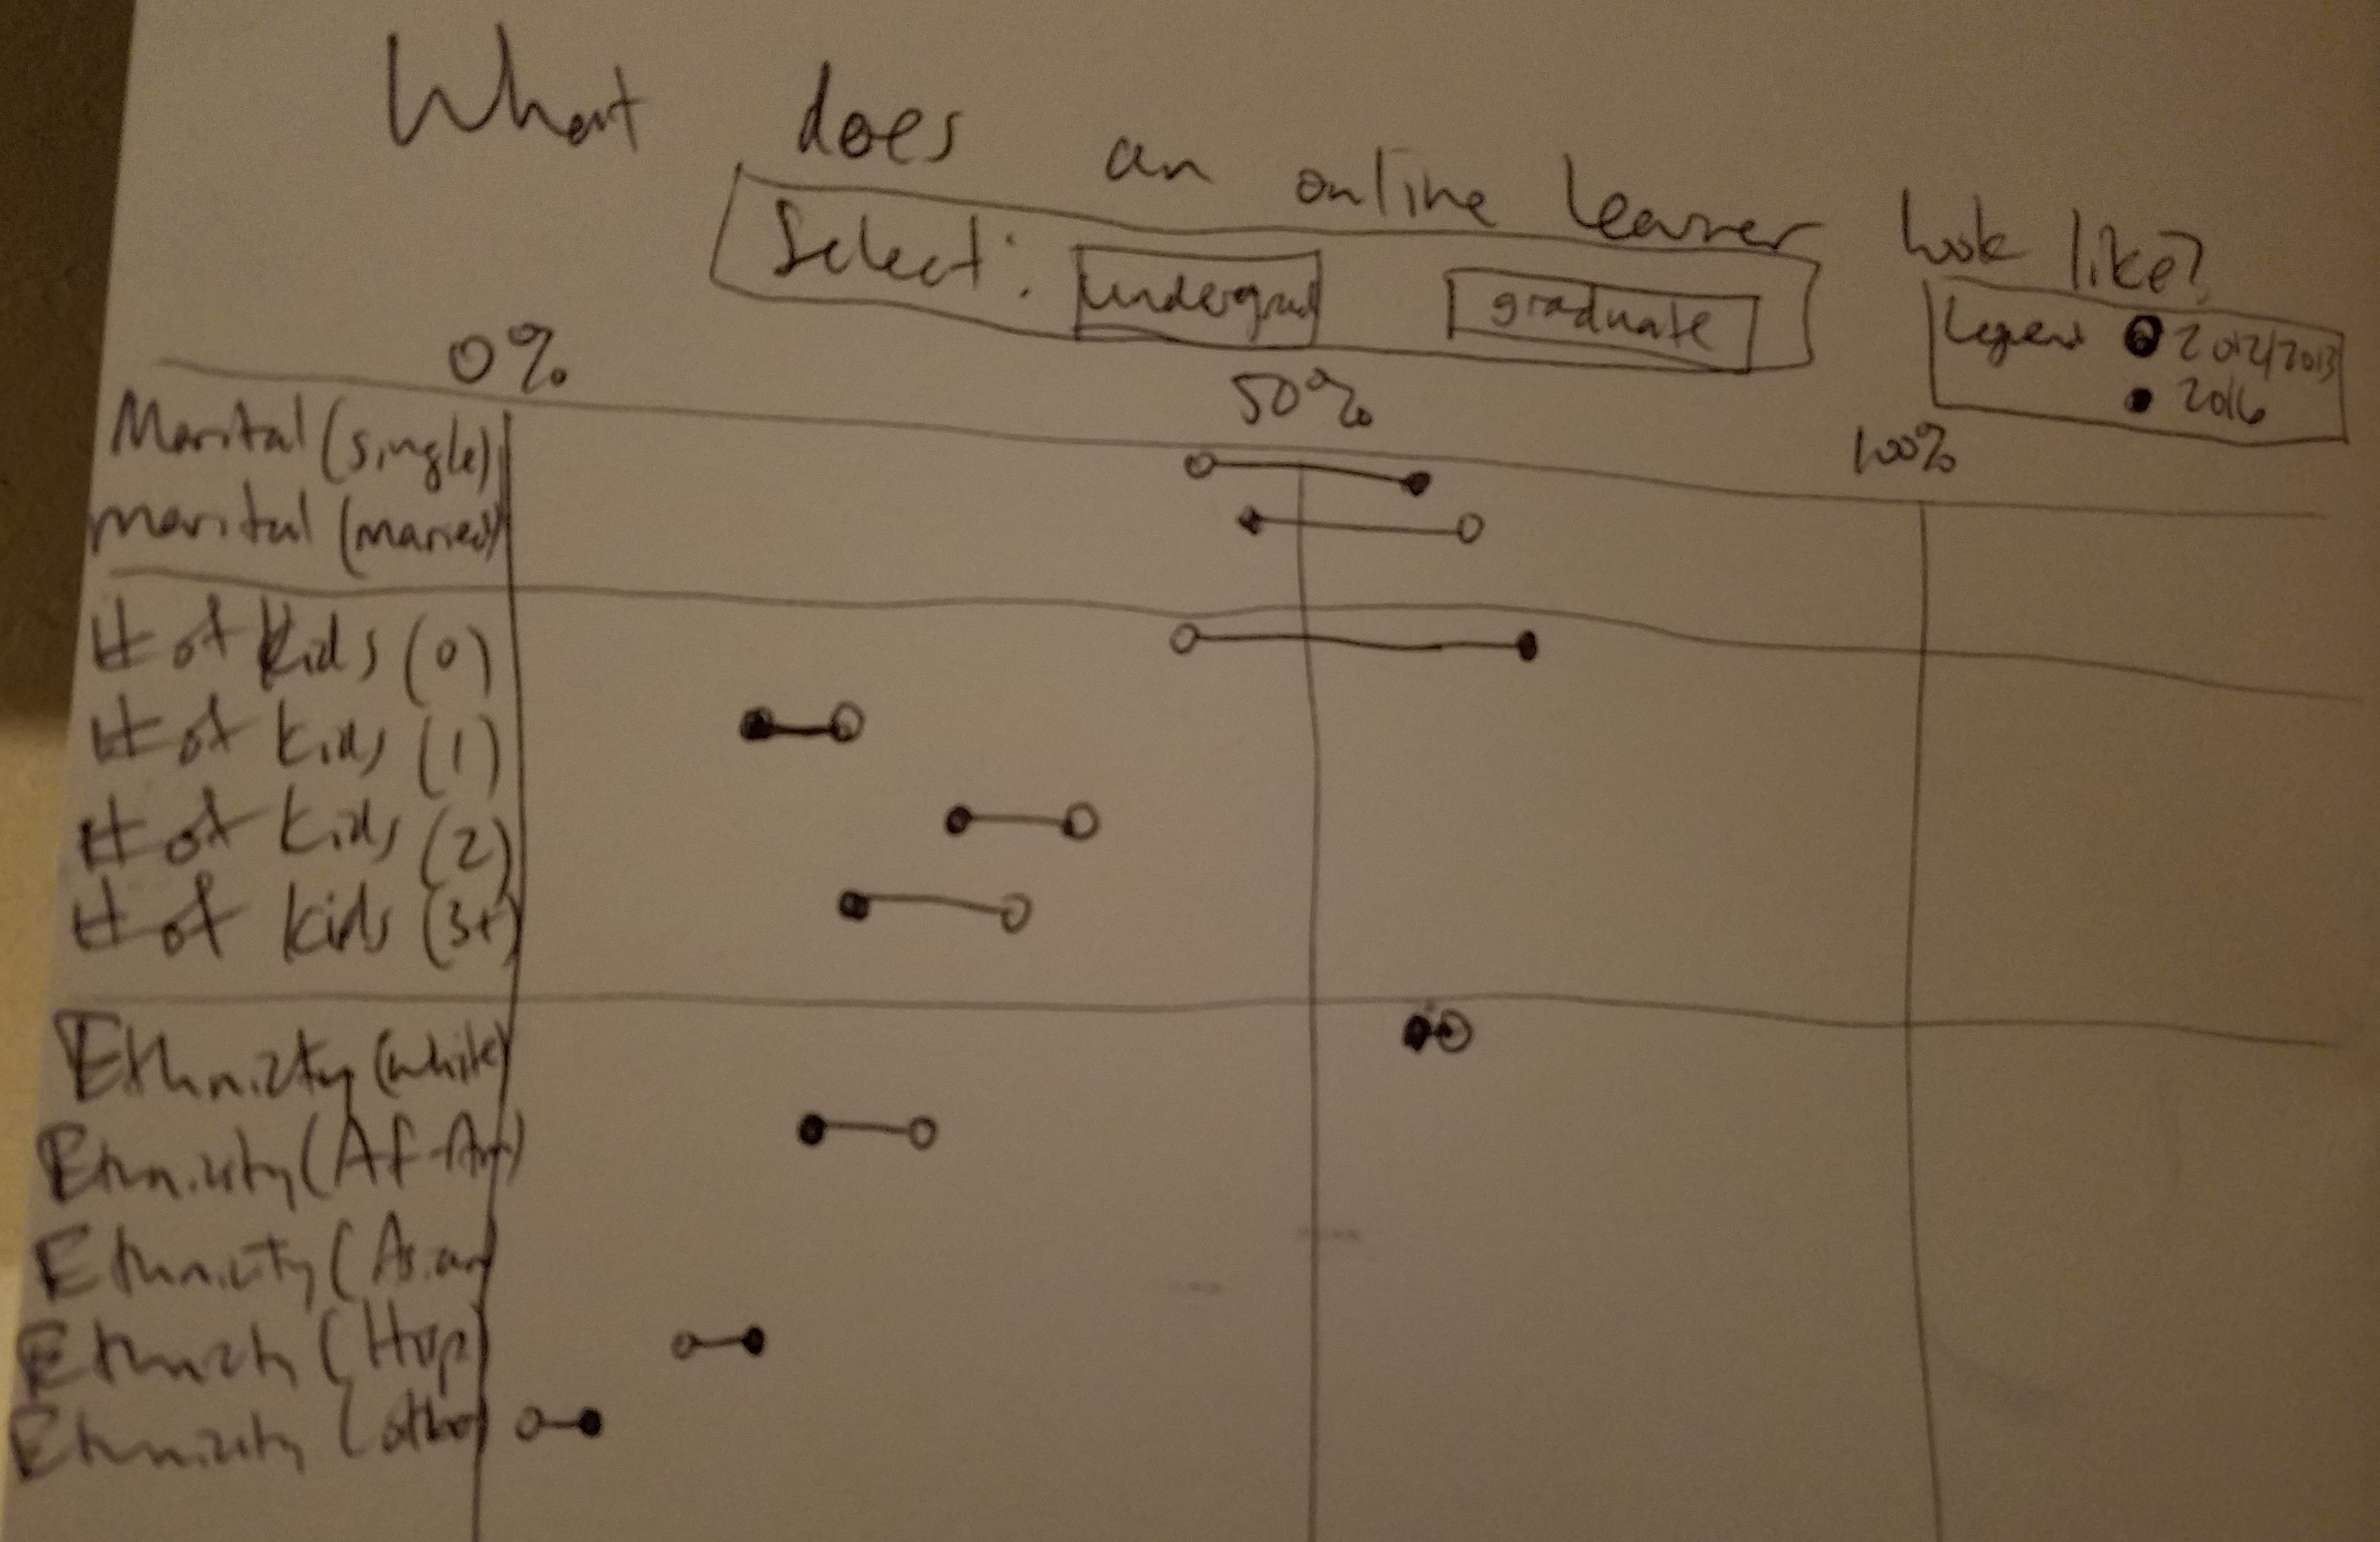 What does an online learner look like?
Select: undergrad graduate
Legend 2012/2013
2016
0% 50% 100%
Marital (single)
Marital (married)
# of kids (0)
# of kids (1)
# of kids (2)
# of kids (3+)
Ethnicity (white)
Ethnicity (Af-Am)
Ethnicity (Asian
Ethnicity (Hisp)
Ethnicity (other)